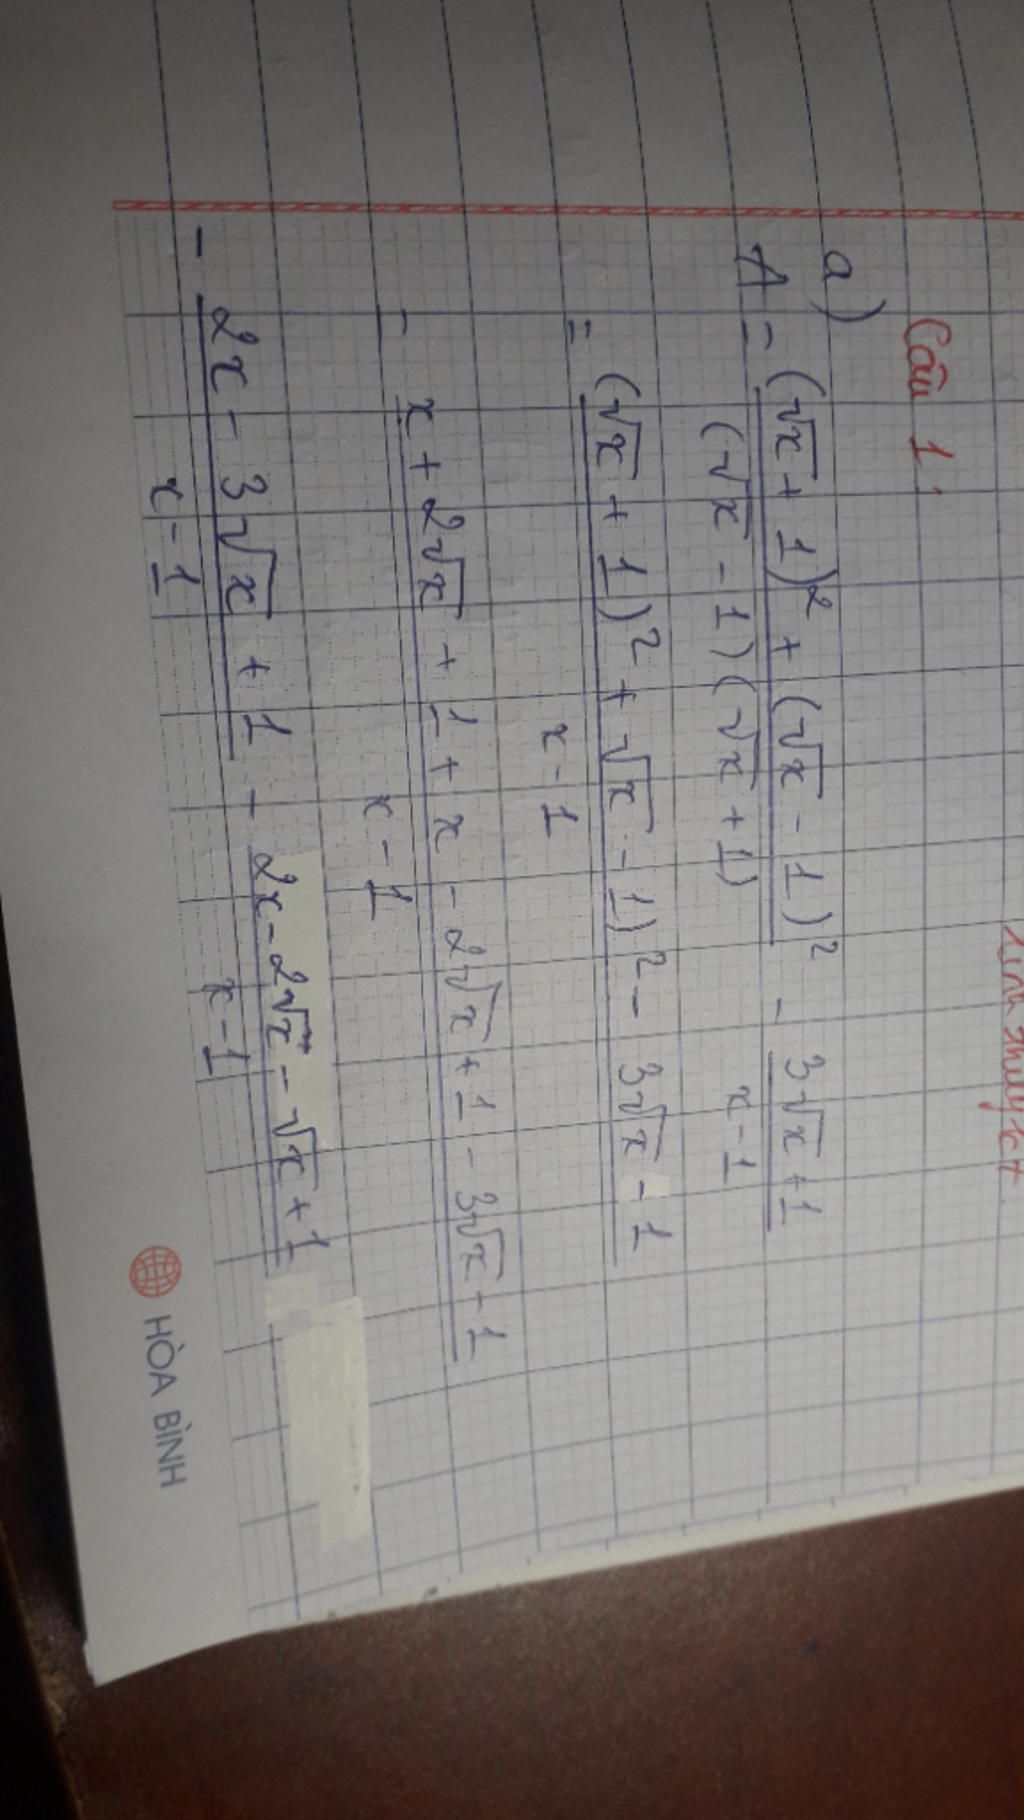 Câu 1:
a)
A = \frac{(\sqrt{x} + 1)^2 + (\sqrt{x} - 1)^2}{(\sqrt{x} - 1)(\sqrt{x} + 1)} - \frac{3\sqrt{x} + 1}{x - 1}
= \frac{(\sqrt{x} + 1)^2 + \sqrt{x} - 1)^2 - 3\sqrt{x} - 1}{x - 1}
= \frac{x + 2\sqrt{x} + 1 + x - 2\sqrt{x} + 1 - 3\sqrt{x} - 1}{x - 1}
= \frac{2x - 3\sqrt{x} + 1}{x - 1} = \frac{2x - 2\sqrt{x} - \sqrt{x} + 1}{x - 1}
HÒA BÌNH